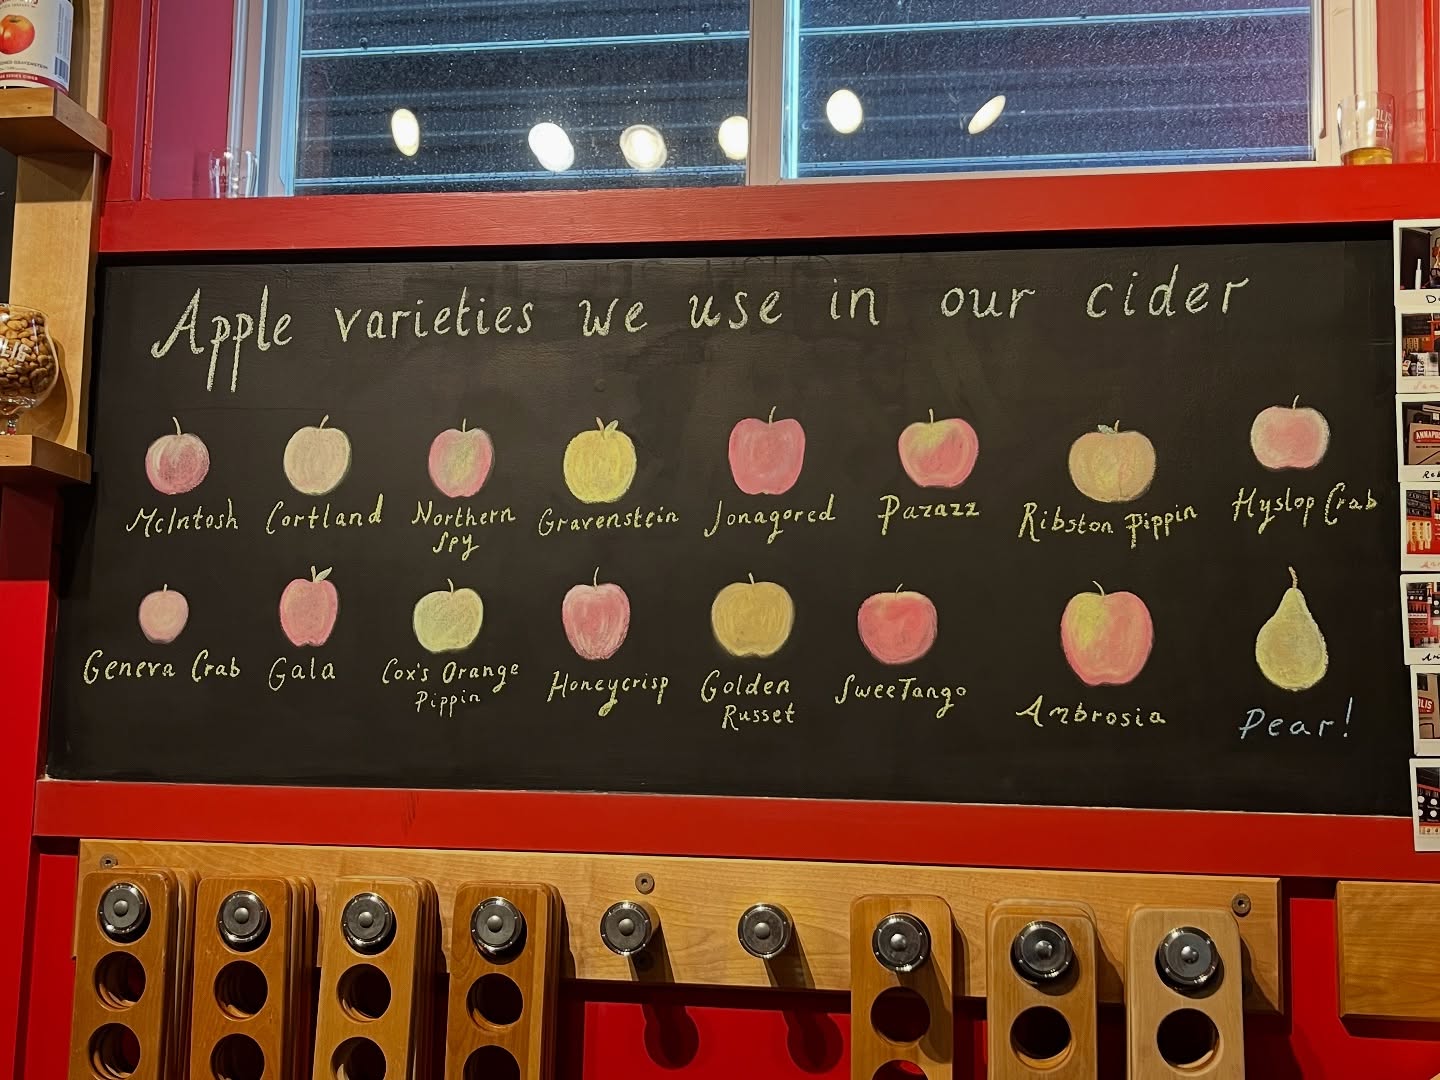 Apple varieties we use in our cider
McIntosh
Cortland
Northern
Spy
Gravenstein
Jonagored
Pazazz
Ribston Pippin
Hyslop Crab
Geneva Crab
Gala
Cox's Orange
Pippin
Honeycrisp
Golden
Russet
SweeTango
Ambrosia
Pear!